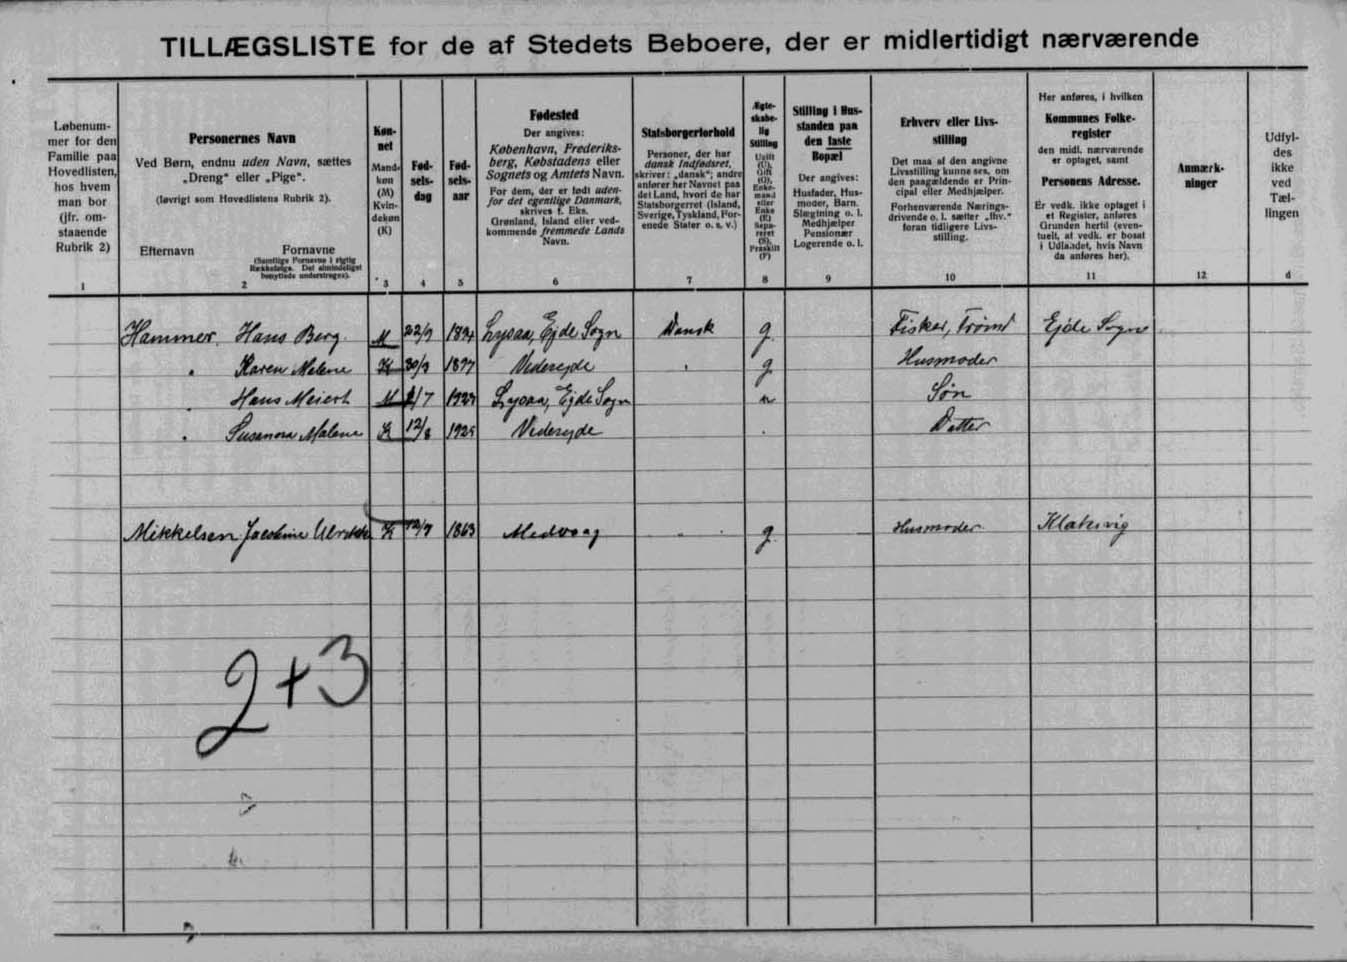 TILLÆGSLISTE for de af Stedets Beboere, der er midlertidigt nærværende
Løbenum-
mer for den
Familie paa
Hovedlisten,
hos hvem
man bor
(jfr. om-
staaende
Rubrik 2)
1
Personernes Navn
Ved Børn, endnu uden Navn, sættes
„Dreng" eller „Pige".
(Iøvrigt som Hovedlistens Rubrik 2).
Efternavn
Fornavne
(Samtlige Fornavne i rigtig
Rækkefølge. Det almindeligst
benyttede understreges).
2
Køn-
net
Mand-
køn
(M)
Kvin-
dekøn
(K)
3
Fød-
sels-
dag
4
Fød-
sels-
aar
5
Fødested
Der angives:
København, Frederiks-
berg, Købstadens eller
Sognets og Amtets Navn.
For dem, der er født uden-
for det egentlige Danmark,
skrives f. Eks.
Grønland, Island eller ved-
kommende fremmede Lands
Navn.
6
Statsborgerforhold
Personer, der har
dansk Indfødsret,
skriver: „dansk"; andre
anfører her Navnet paa
det Land, hvori de har
Statsborgerret (Island,
Sverige, Tyskland, For-
enede Stater o. s. v.)
7
Ægte-
skabe-
lig
Stilling
Ugift
(U),
Gift
(G),
Enke-
mand
eller
Enke
(E)
Sepa-
reret
(S),
Fraskilt
(F)
8
Stilling i Hus-
standen paa
den faste
Bopæl
Der angives:
Husfader, Hus-
moder, Barn,
Slægtning o. l.
Medhjælper
Pensionær
Logerende o. l.
9
Erhverv eller Livs-
stilling
Det maa af den angivne
Livsstilling kunne ses, om
den paagældende er Prin-
cipal eller Medhjælper.
Forhenværende Nærings-
drivende o. l. sætter „fhv."
foran tidligere Livs-
stilling.
10
Her anføres, i hvilken
Kommunes Folke-
register
den midl. nærværende
er optaget, samt
Personens Adresse.
Er vedk. ikke optaget i
et Register, anføres
Grunden hertil (even-
tuelt, at vedk. er bosat
i Udlandet, hvis Navn
da anføres her).
11
Anmærk-
ninger
12
Udfyl-
des
ikke
ved
Tæl-
lingen
d
Hammer Hans Berg M 22/7 Ejde Sogn Dansk g. Fisker, Ejde Sogn
" Karen Malene K 30/3 1877 Videreyde " g. Husmoder
" Hans Meiert M /7 Ejde Sogn u Søn
" Susanna Malene K 12/8 Videreyde " Datter
Mikkelsen K 12/7 1863 " g. Husmoder Klaksvig
2+3